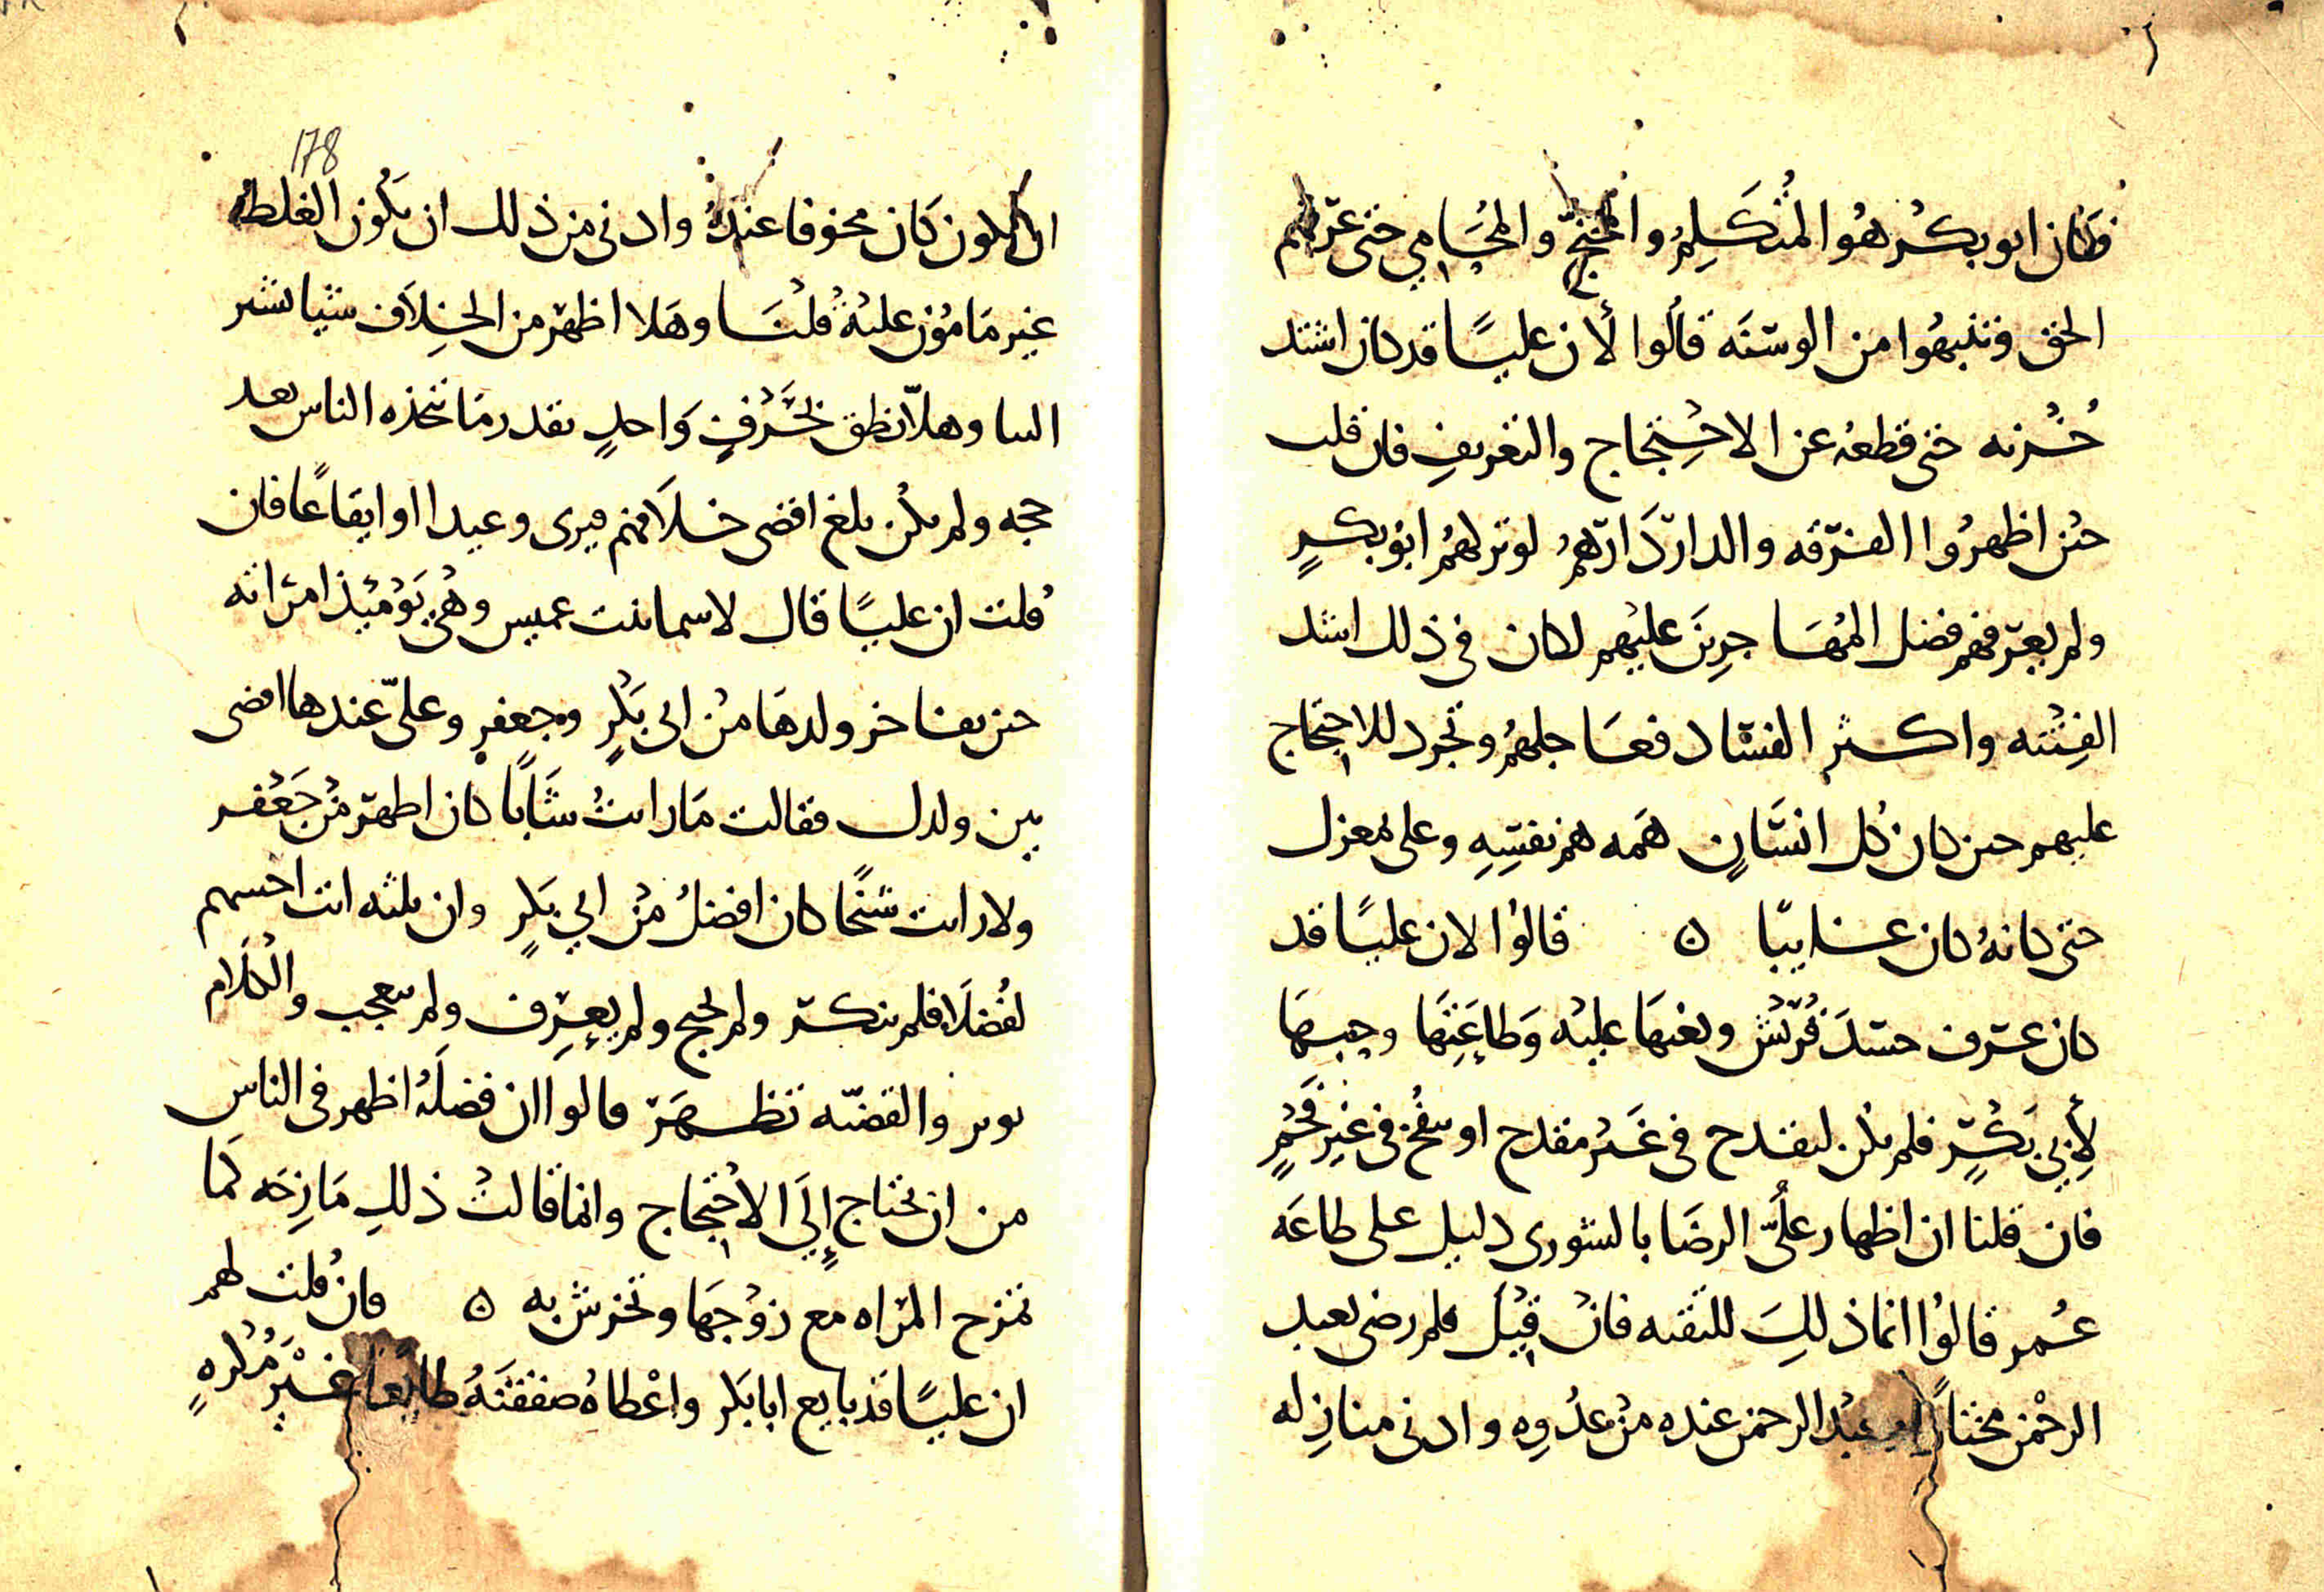 فكان ابو بكر هو المتكلم والمحتج والمحامي حتى عرفهم
الحق وتنبهوا من الوسنه قالوا لأن عليًا قد كان اشتد
حُزنه حتى قطعه عن الاحتجاج والتعريف فان قلت
حين اظهروا الفرقه والدار دارهم لو ترلهم ابو بكرٍ
ولم يعرفهم فضل المهاجرين عليهم لكان في ذلك اشد
الفتنه واكثر الفساد فعاجلهم وتجرد للاحتجاج
عليهم حين كان كل انسانٍ همه هم نفسه وعلى بمعزل
حتى كانه كان غايبا ه قالوا لان عليًا قد
كان عرف حسد قريش وبغيها عليه وطاعتها وحبها
لأبي بكرٍ فلم يكن ليقدح في غير مقدح او ينفخ في غير فحمٍ
فان قلنا ان اظهار علىّ الرضا بالشورى دليل على طاعه
عمر قالوا انما ذلك للتقيه فان قيل فلم رضى بعبد
الرحمن مختاراً عبد الرحمن عنده من عدوه وادنى منازله
178
ان يكون كان مخوفا عنده وادنى من ذلك ان يكون الغلط
غير مامون عليه قلنا وهلا اظهر من الخلاف شيا نشر
الينا وهلاّ نطق بحرفٍ واحدٍ بقدر ما تتخذه الناس بعد
حجه ولم يكن بلغ اقصى خلافهم فيرى وعيدا او ايقاعًا فان
قلت ان عليًا قال لاسما بنت عميس وهي يومئذ امراته
حين تفاخر ولدها من ابي بكرٍ وجعفرٍ وعلىّ عندها اقضى
بين ولدك فقالت ما رايتُ شابًا كان اطهر من جعفر
ولا رايت شيخًا كان افضلُ من ابي بكرٍ وان ثلثه انت اخسهم
لفضلا فلم ينكر ولم يحتج ولم يعرف ولم يتعجب والكلام
يوبر والقضيّه تظهر قالوا ان فضلهُ اظهر في الناس
من ان يحتاج إلى الاحتجاج وانما قالت ذلك مازحه كما
تمزح المراه مع زوجها وتحرش به ه فان قلت لهم
ان عليًا قد بايع ابا بكر واعطاه صفقته طايعًا غير مكرهٍ